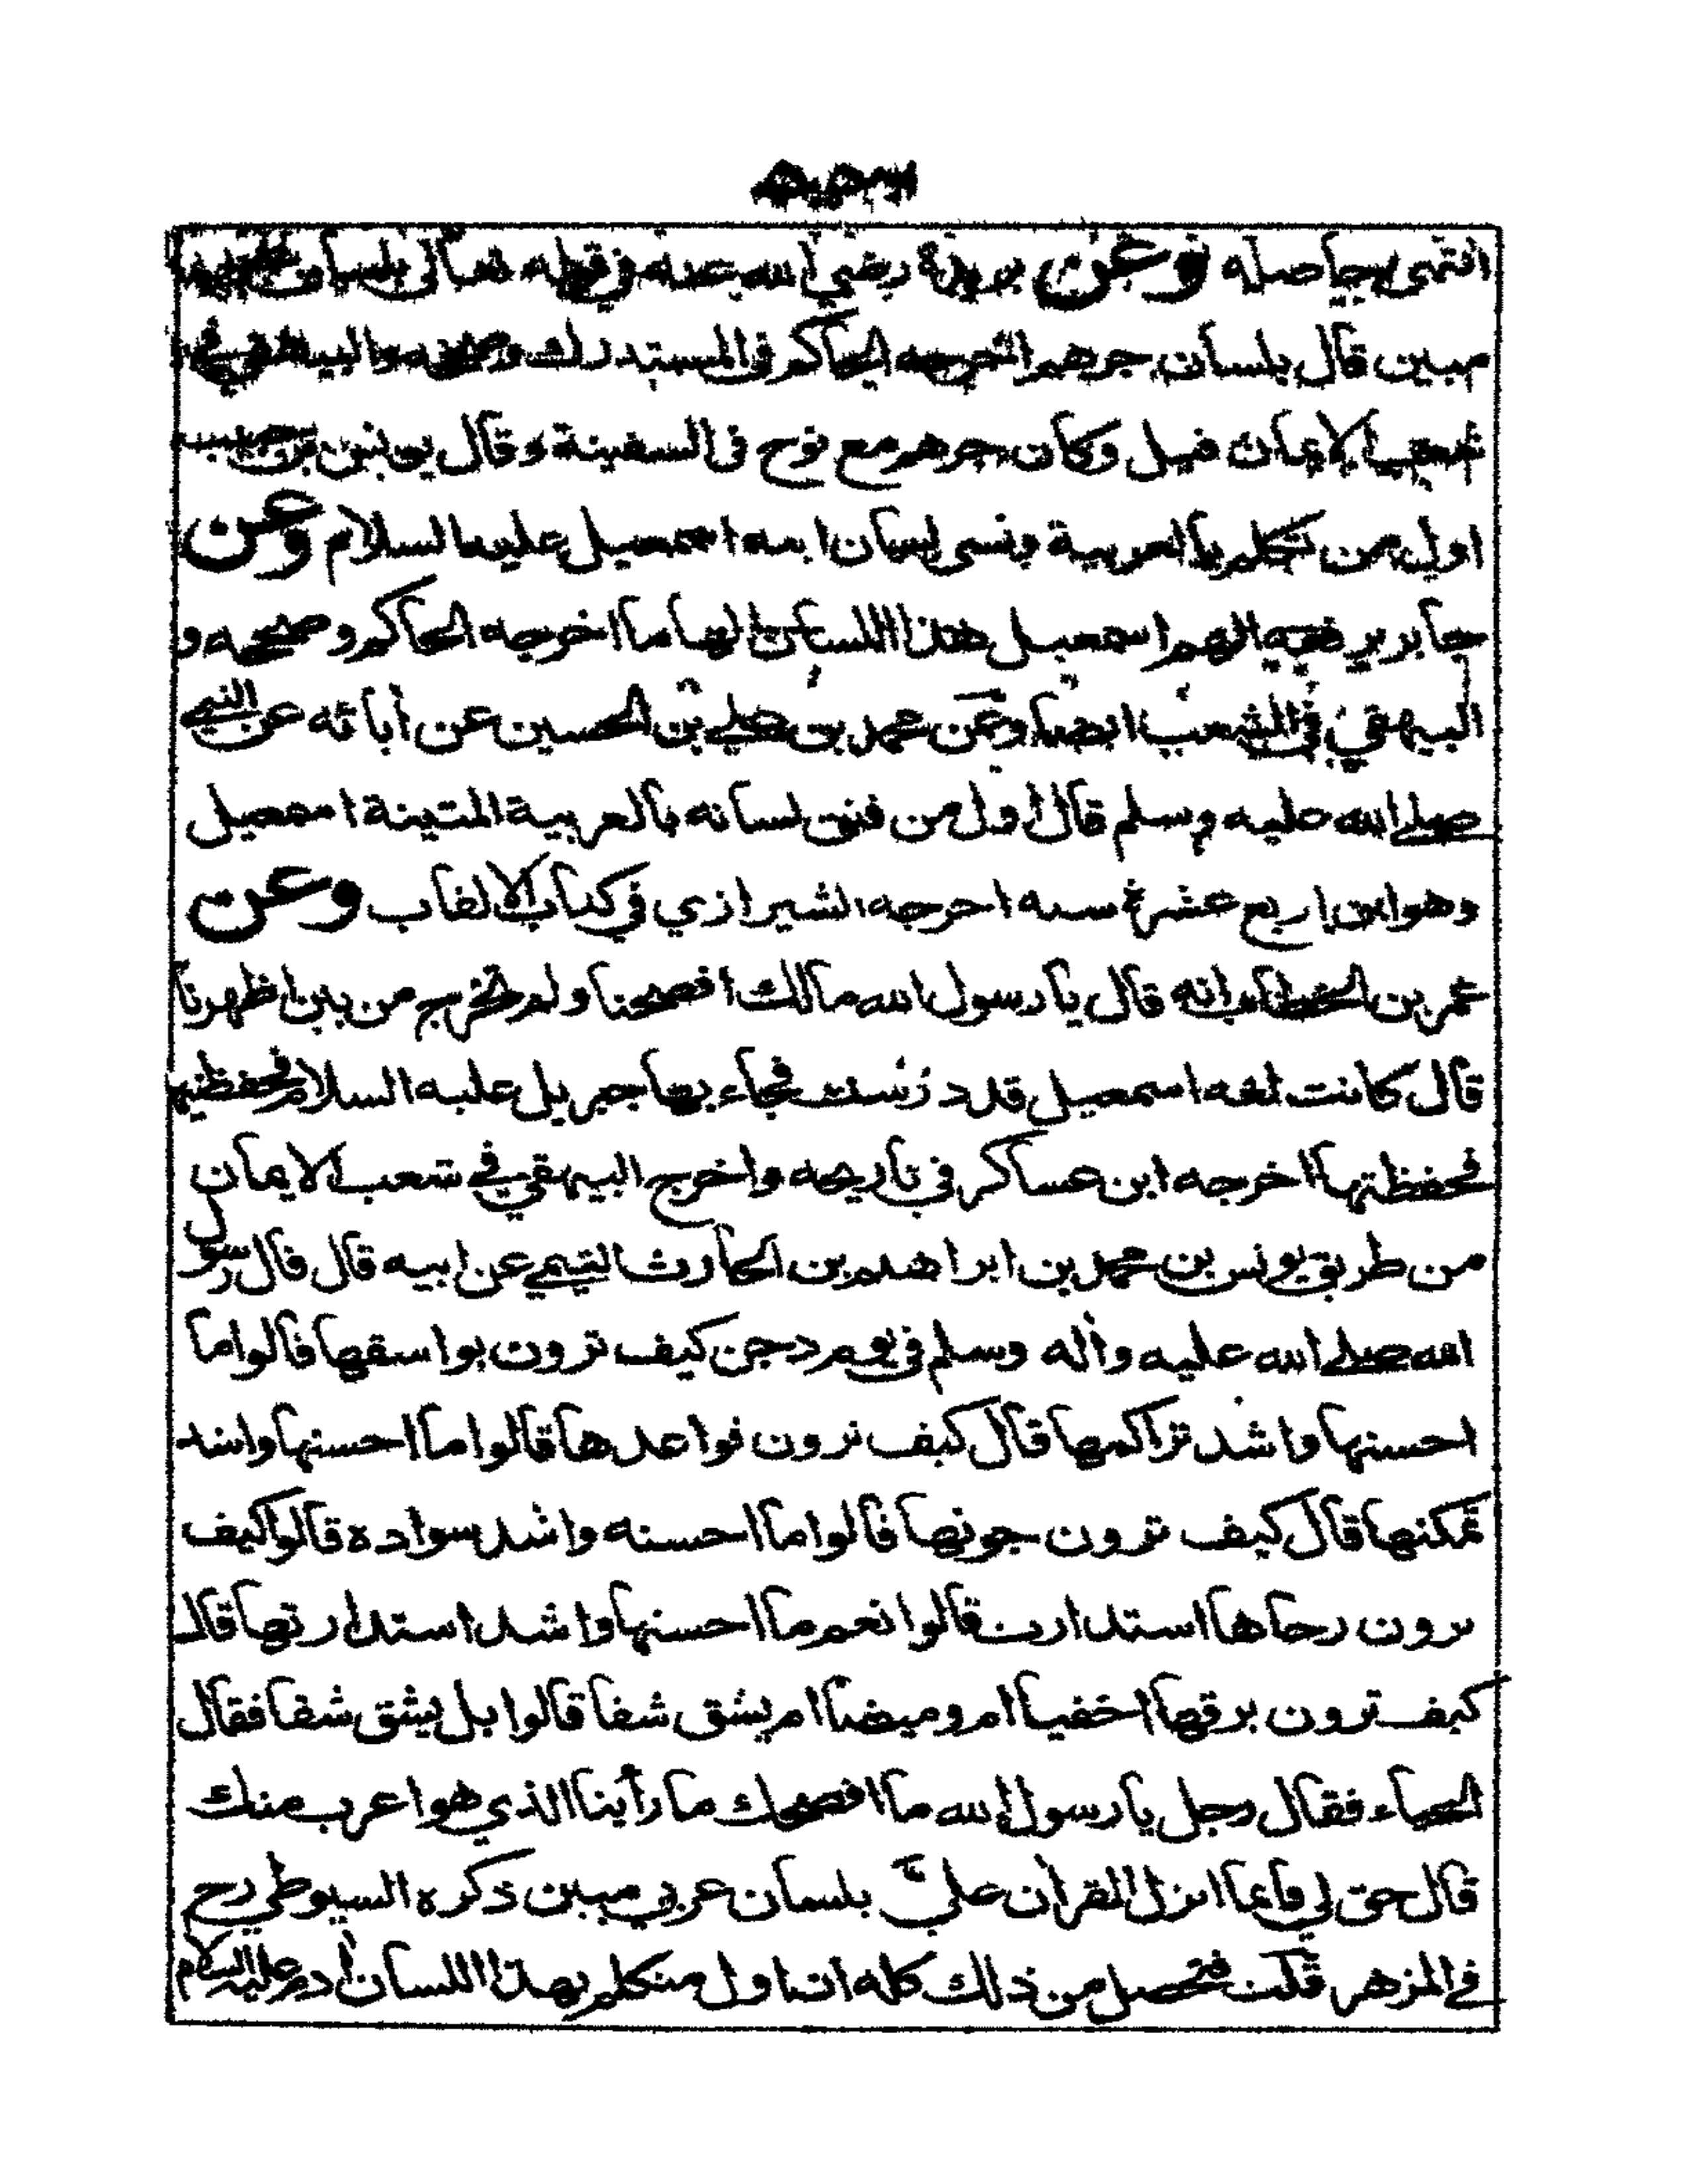 انتهى حاصله وعن بريدة رضي الله عنه في قوله تعالى بلسان عربي
مبين قال بلسان جرهم اخرجه الحاكم في المستدرك وصححه والبيهقي في
شعب الايمان قيل وكان جرهم مع نوح في السفينة وقال يونس بن حبيب
اول من تكلم بالعربية ونسى لسان ابيه اسمعيل عليهما السلام وعن
جابر يرفعه الهم اسمعيل هذا اللسان الهاما اخرجه الحاكم وصححه و
البيهقي في الشعب ايضا وعن محمد بن علي بن الحسين عن أبائه عن النبي
صلى الله عليه وسلم قال اول من فتق لسانه بالعربية المتينة اسمعيل
وهو ابن اربع عشرة سنه اخرجه الشيرازي في كتاب الالقاب وعن
عمر بن الخطاب انه قال يا رسول الله مالك افصحنا ولم تخرج من بين اظهرنا
قال كانت لغه اسمعيل قد درست فجاء بها جبريل عليه السلام فحفظنيها
فحفظتها اخرجه ابن عساكر في تاريخه واخرج البيهقي في شعب الايمان
من طريق يونس بن محمد بن ابراهيم بن الحارث التيمي عن ابيه قال قال رسول
الله صلى الله عليه وأله وسلم في يوم دجن كيف ترون بواسقها قالوا ما
احسنها واشد تراكمها قال كيف ترون قواعدها قالوا ما احسنها واشد
تمكنها قال كيف ترون جونها قالوا ما احسنه واشد سواده قالوا كيف
ترون رحاها استدارت قالوا نعم ما احسنها واشد استدارتها قال
كيف ترون برقها اخفيا ام وميضا ام يشق شقا قالوا بل يشق شقا فقال
الحياء فقال رجل يا رسول الله ما افصحك ما رأينا الذي هو اعرب منك
قال حق لي فانما انزل القرأن عليّ بلسان عربي مبين ذكره السيوطي رح
في المزهر قلت فتحصل من ذلك كله ان اول من تكلم بهذا اللسان أدم عليه السلام